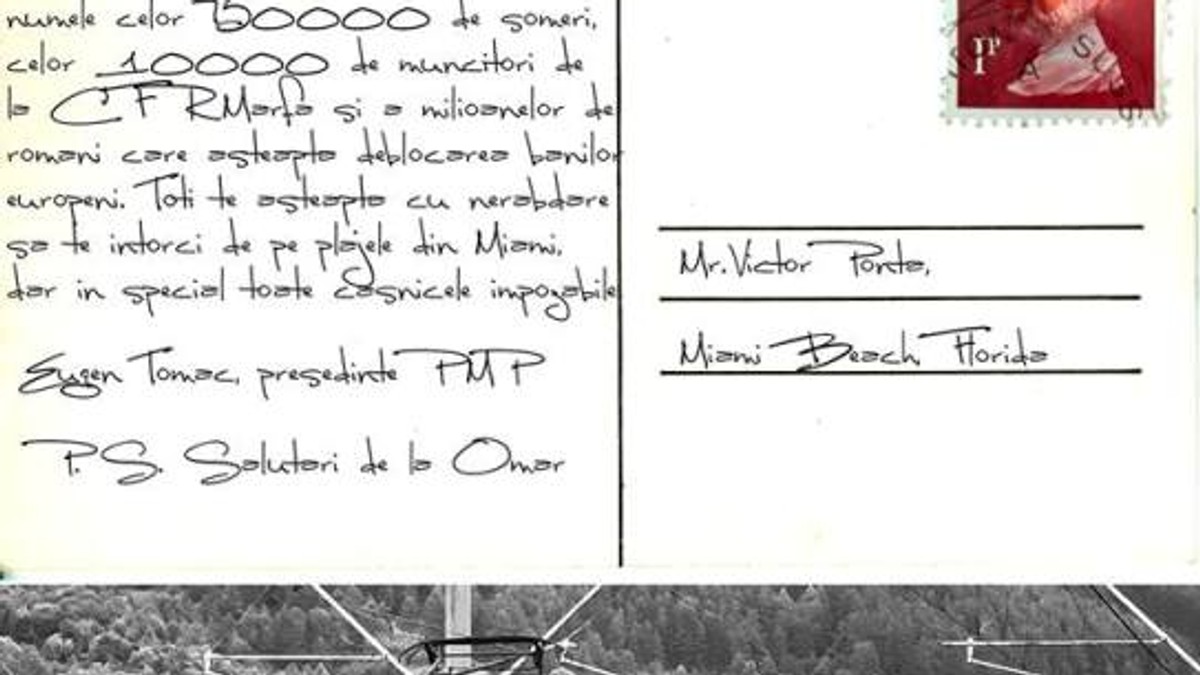 numele celor 750000 de someri,
celor 10000 de muncitori de
la CFR Marfa si a milioanelor de
romani care asteapta deblocarea banilor
europeni. Toti te asteapta cu nerabdare
sa te intorci de pe plajele din Miami,
dar in special toate casnicele impozabile
Eugen Tomac, presedinte PMP
P.S. Salutari de la Omar
Mr. Victor Ponta,
Miami Beach, Florida